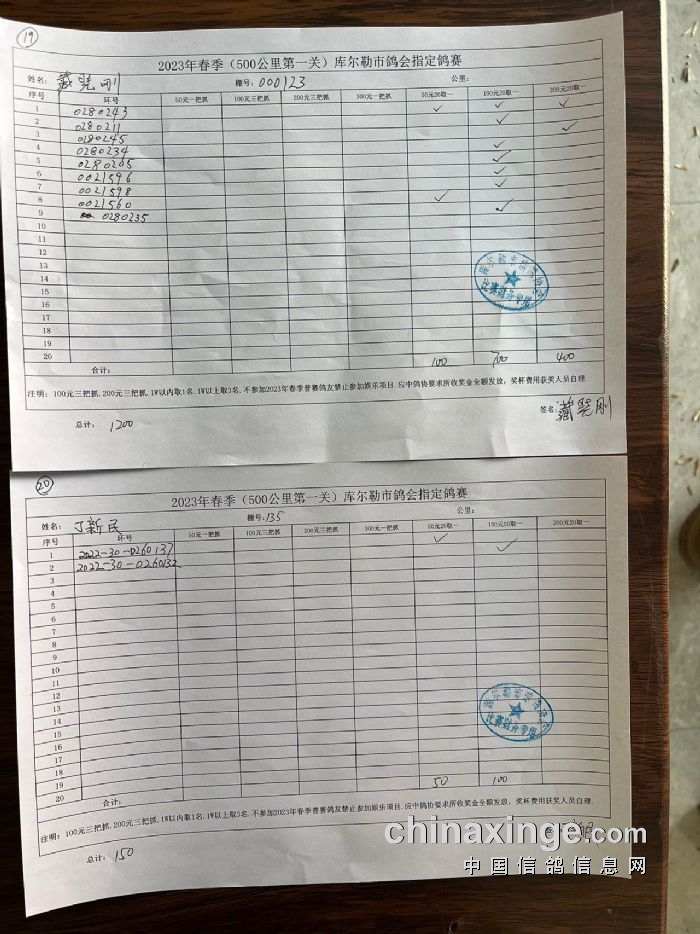 19
2023年春季（500公里第一关）库尔勒市鸽会指定鸽赛
姓名: 臧晓刚 棚号: 000123 公里:
序号 环号 50元一把抓 100元三把抓 200元三把抓 300元一把抓 50元20取一 100元20取一 200元20取一
1 0280243 ✓ ✓ ✓
2 0280211 ✓
3 0280245 ✓
4 0280234 ✓
5 0280205 ✓
6 0021596 ✓
7 0021598 ✓
8 0021560 ✓
9 0280235 ✓
10
11
12
13
14
15
16
17
18
19
20
合计: 100 700 400
注明: 100元三把抓,200元三把抓,1W以内取1名.1W以上取3名.不参加2023年春季普赛鸽友禁止参加娱乐项目.应中鸽协要求所收奖金全额发放，奖杯费用获奖人员自理.
签名: 臧晓刚
总计: 1200
比赛财务专用
20
2023年春季（500公里第一关）库尔勒市鸽会指定鸽赛
姓名: 丁新民 棚号: 135 公里:
序号 环号 50元一把抓 100元三把抓 200元三把抓 300元一把抓 50元20取一 100元20取一 200元20取一
1 2022-30-0260137 ✓ ✓
2 2022-30-0260132
3
4
5
6
7
8
9
10
11
12
13
14
15
16
17
18
19
20
合计: 50 100
注明: 100元三把抓,200元三把抓,1W以内取1名.1W以上取3名.不参加2023年春季普赛鸽友禁止参加娱乐项目.应中鸽协要求所收奖金全额发放，奖杯费用获奖人员自理.
总计: 150
比赛财务专用
chinaxinge.com
中国信鸽信息网